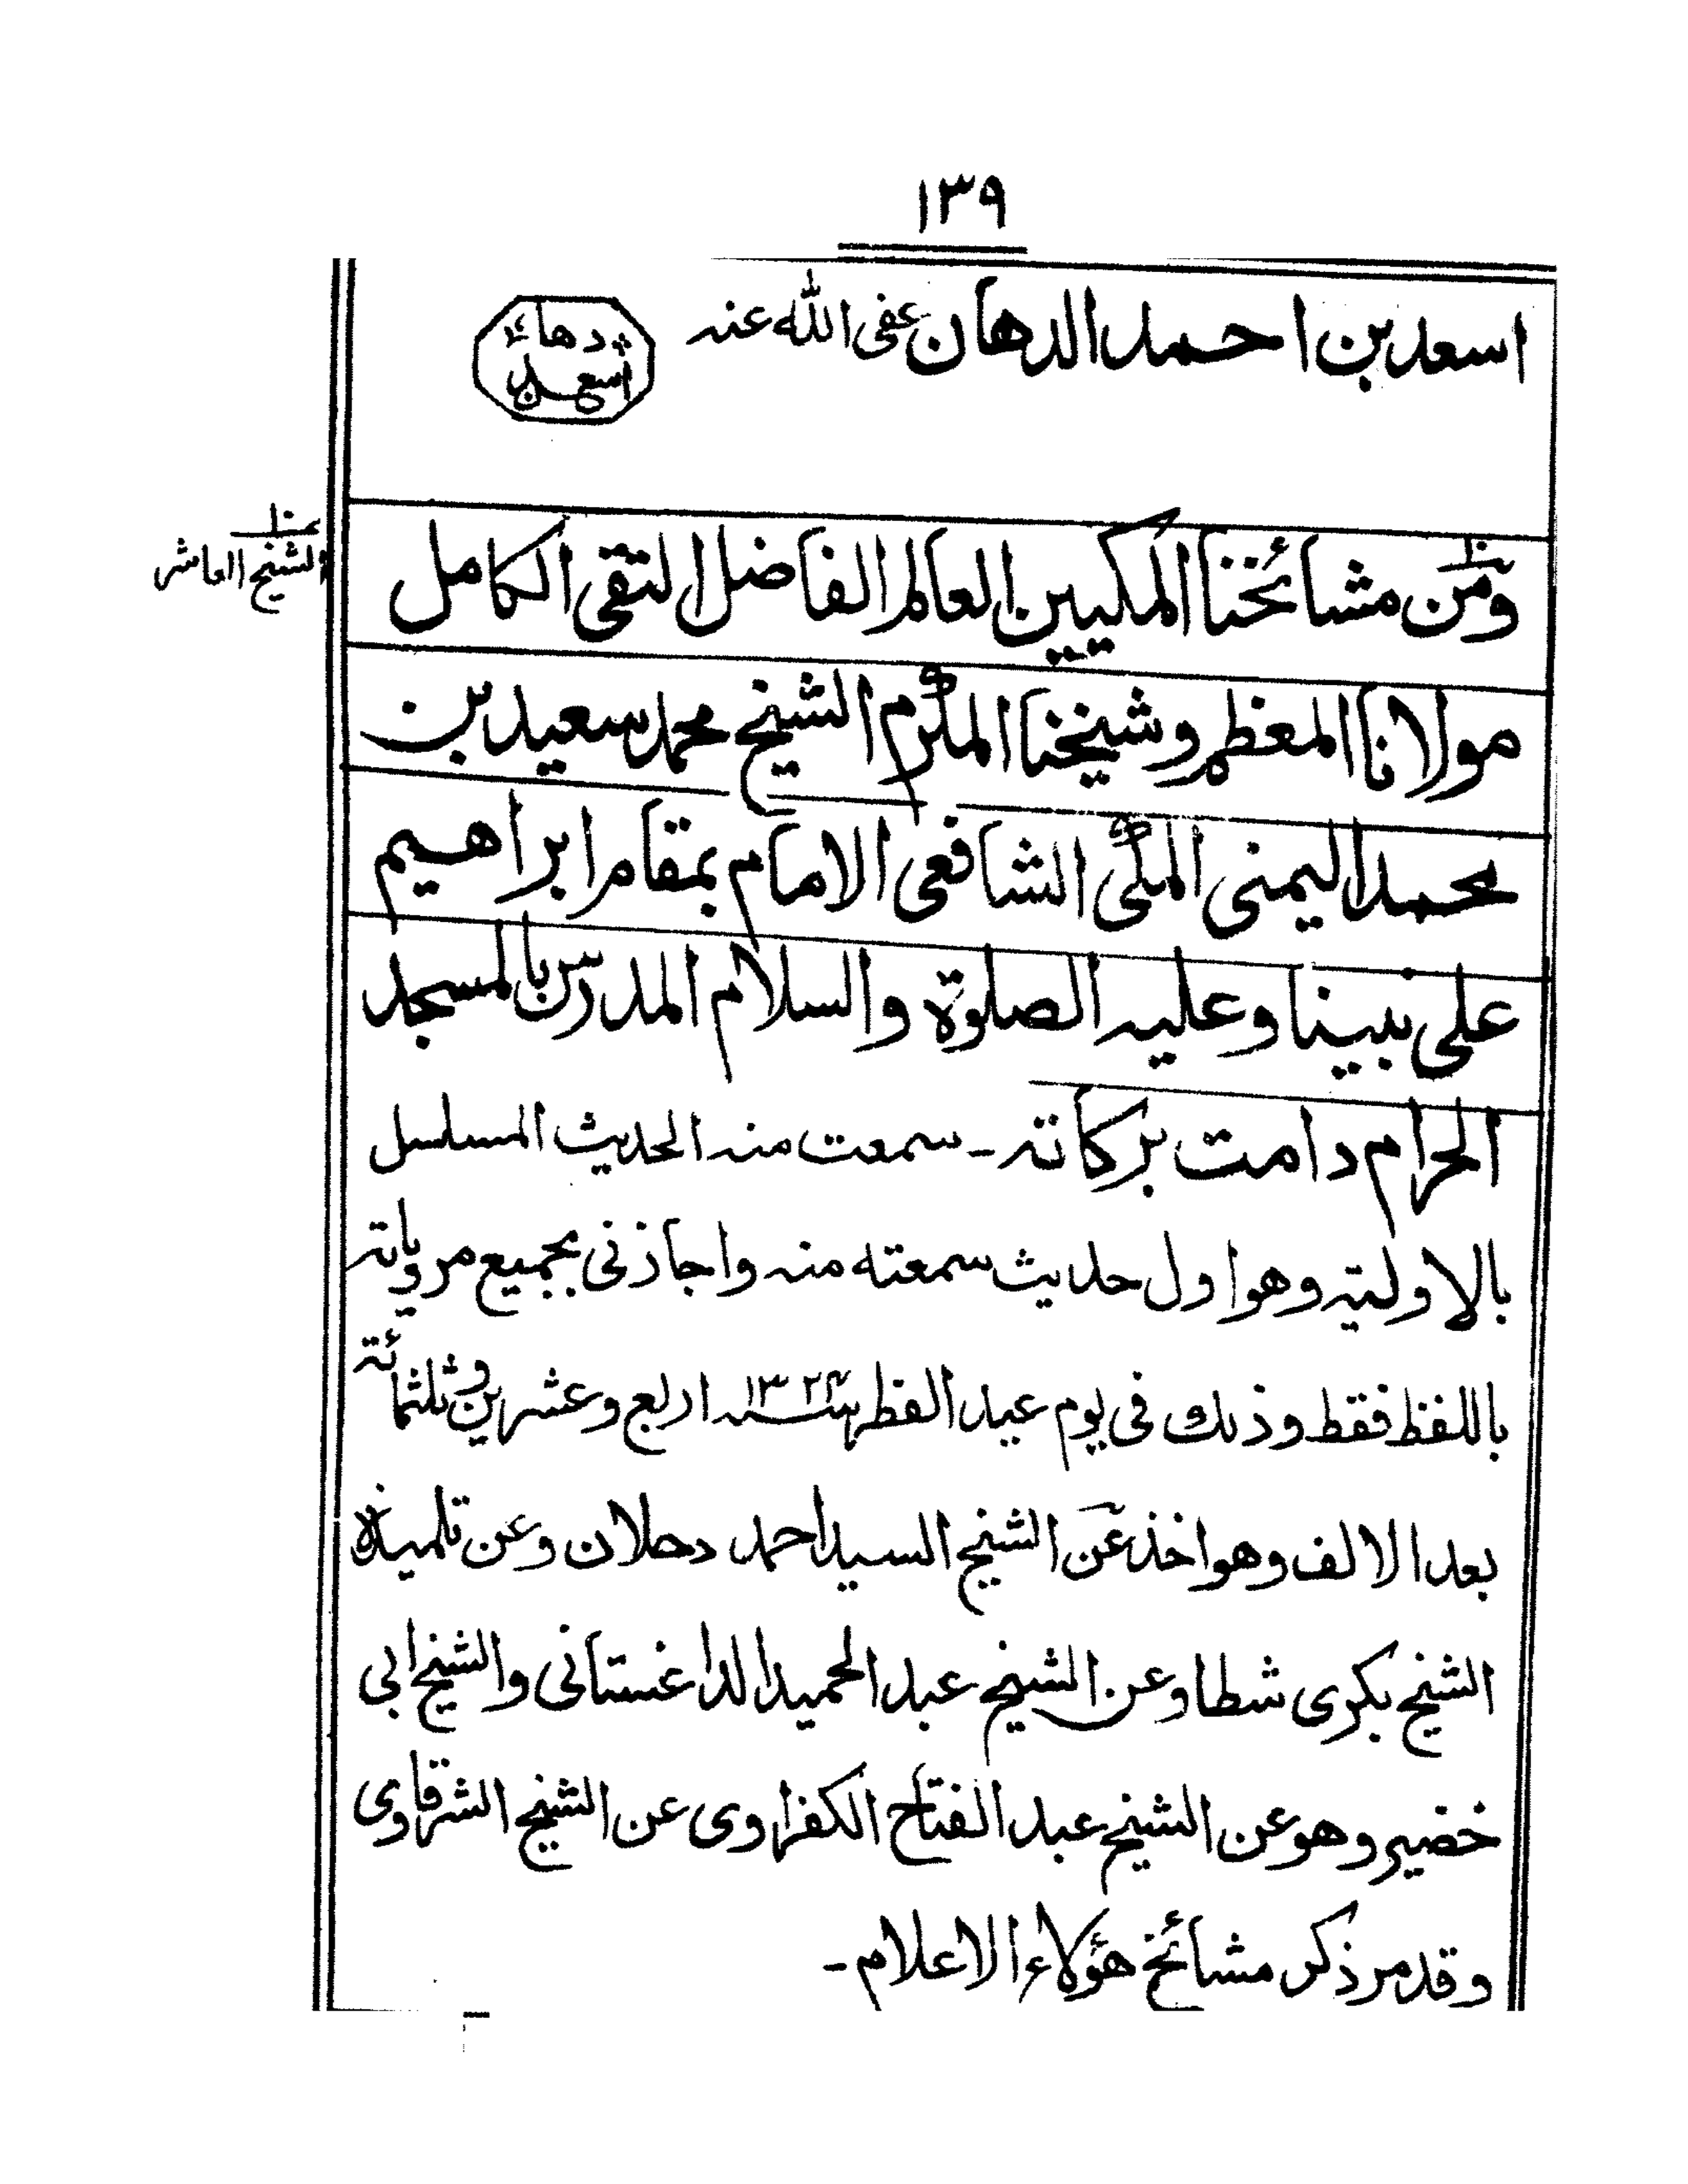 ١٣٩
اسعد بن احمد الدهان عفى الله عنه
دهان
اسعد
الشيخ العاشر
ومن مشائخنا المكيين العالم الفاضل التقى الكامل
مولانا المعظم وشيخنا المكرم الشيخ محمد سعيد بن
محمد اليمنى المكى الشافعى الامام بمقام ابراهيم
على نبينا وعليه الصلوة والسلام المدرس بالمسجد
الحرام دامت بركاته ـ سمعت منه الحديث المسلسل
بالاولية وهو اول حديث سمعته منه واجازنى بجميع مروياته
باللفظ فقط وذلك فى يوم عيد الفطر سنه ١٣٢٤ اربع وعشرين وثلثمائة
بعد الالف وهو اخذ عن الشيخ السيد احمد دحلان وعن تلميذه
الشيخ بكرى شطا وعن الشيخ عبد الحميد الداغستانى والشيخ ابى
خضير وهو عن الشيخ عبد الفتاح الكفراوى عن الشيخ الشرقاوى
وقد مر ذكر مشائخ هؤلاء الاعلام ـ